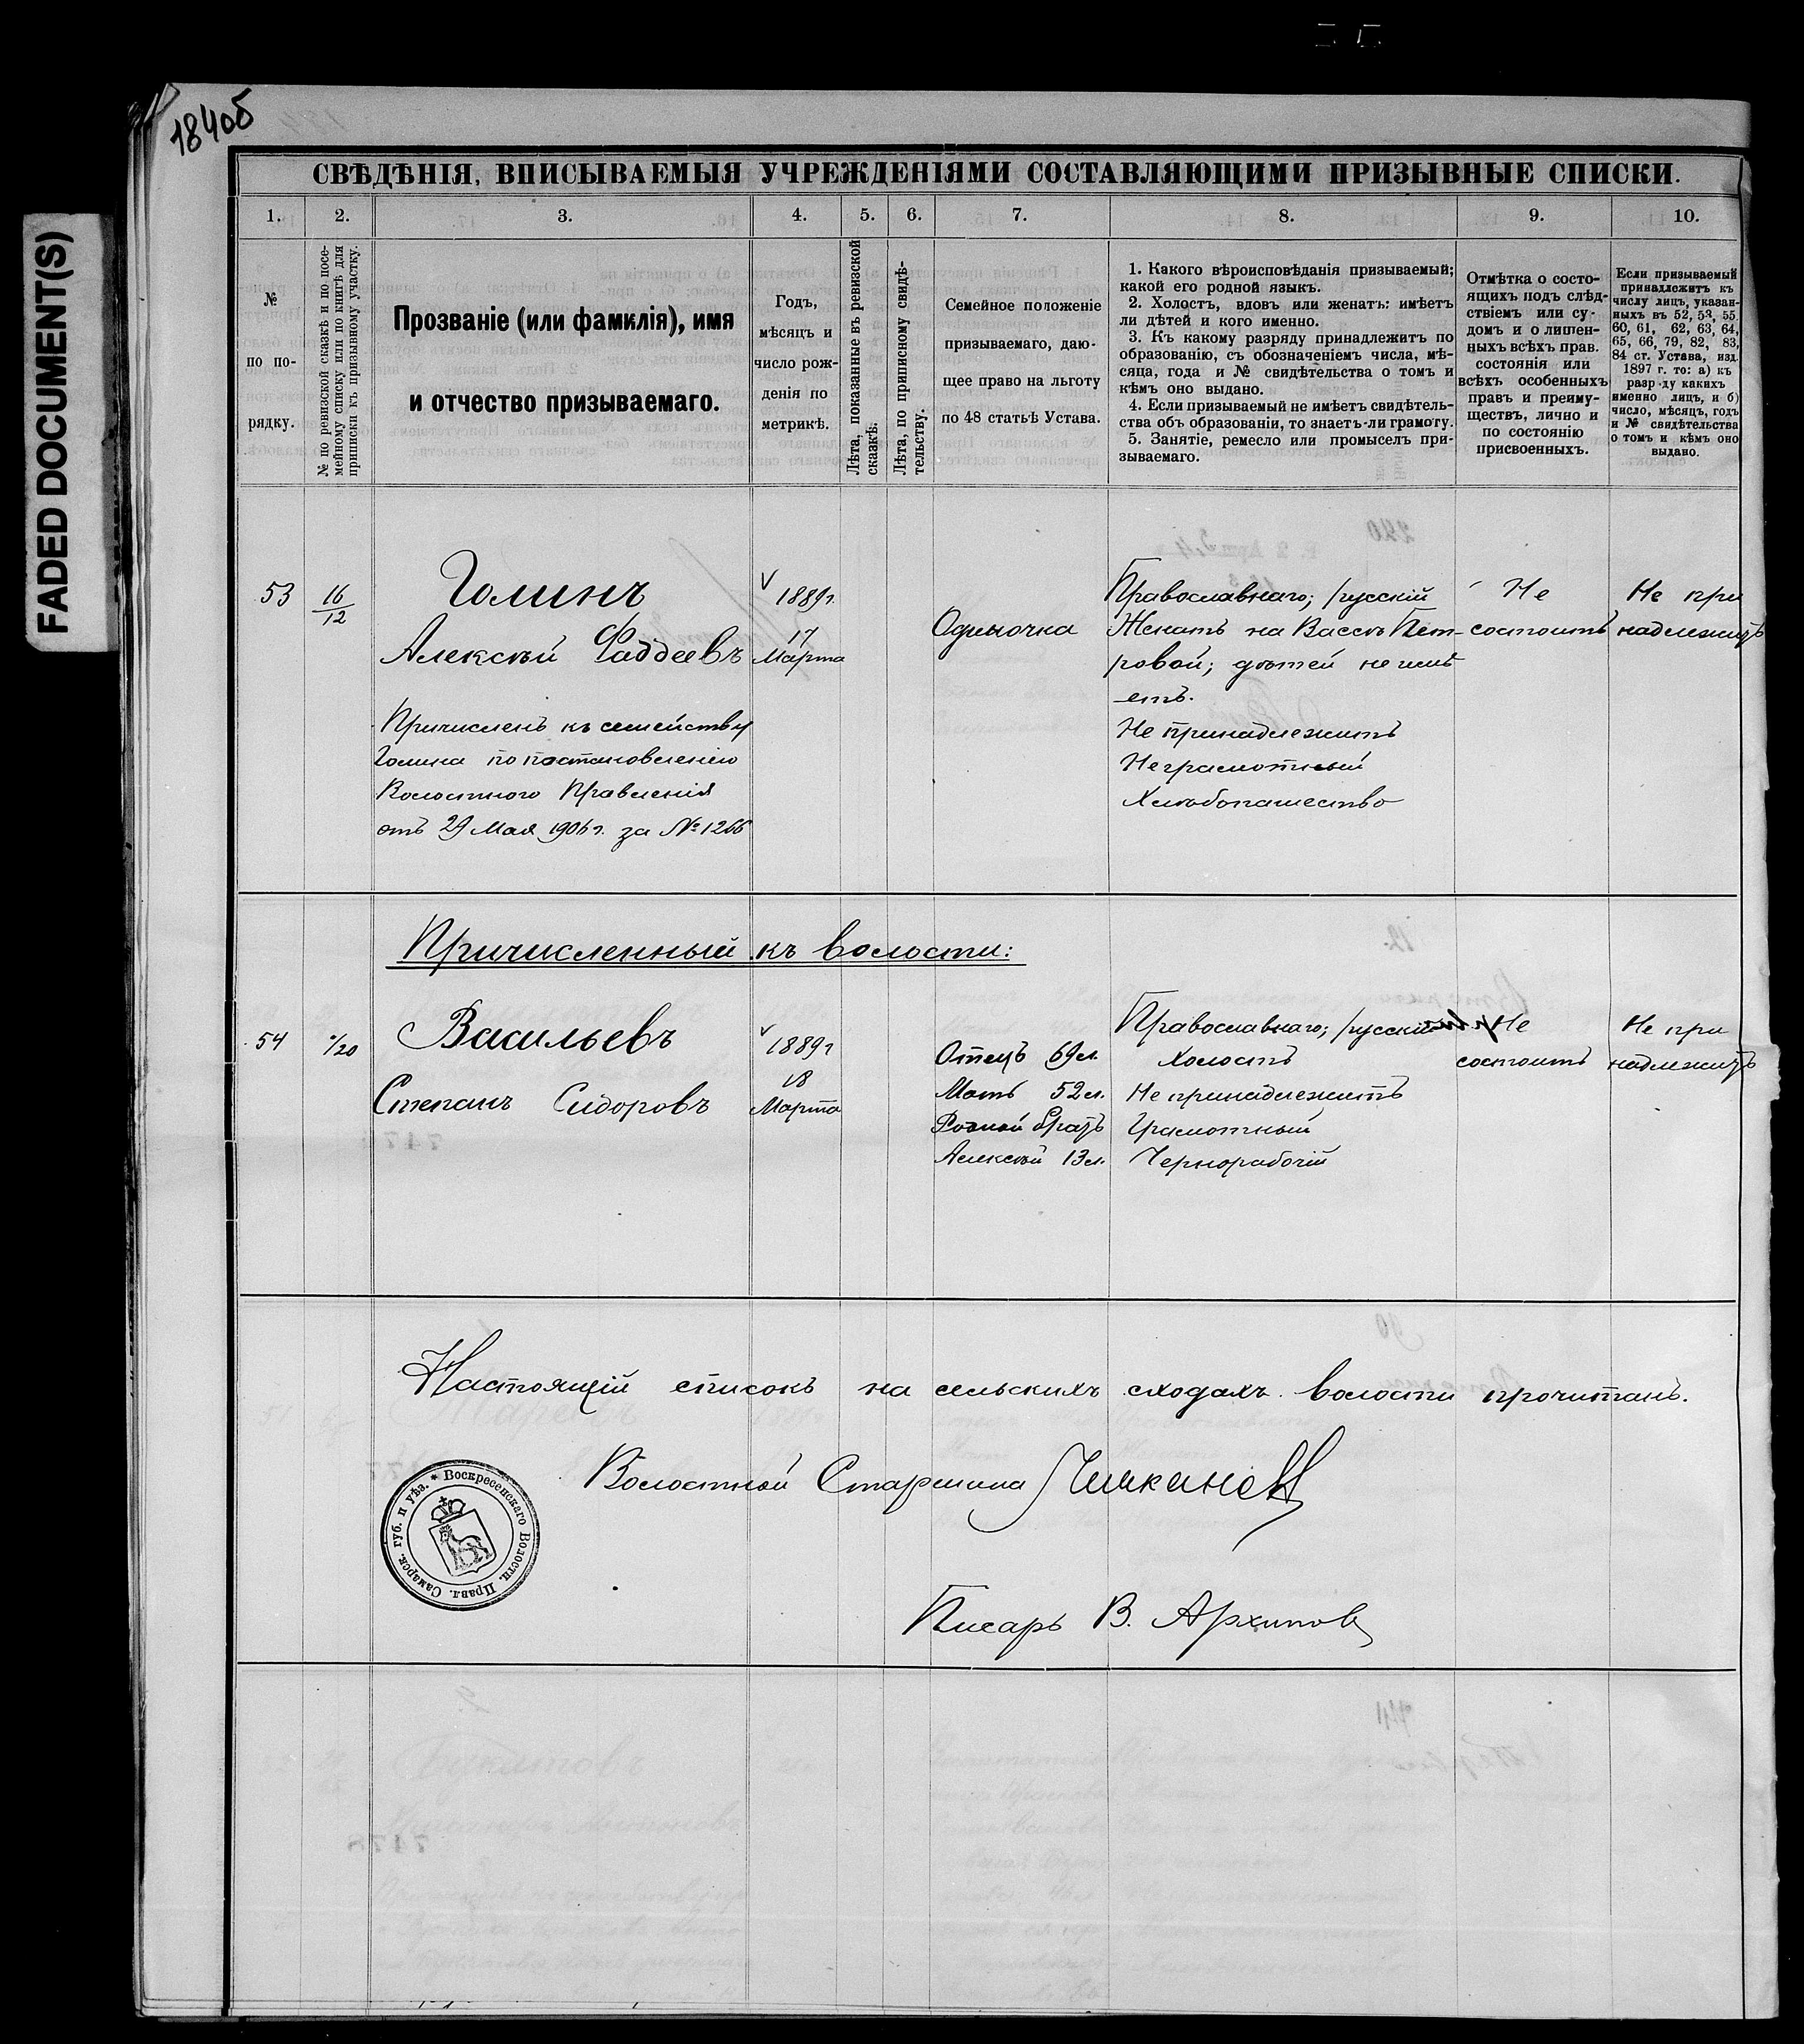 FADED DOCUMENT(S)
184об
СВѢДѢНІЯ, ВПИСЫВАЕМЫЯ УЧРЕЖДЕНІЯМИ СОСТАВЛЯЮЩИМИ ПРИЗЫВНЫЕ СПИСКИ.
1. 2. 3. 4. 5. 6. 7. 8. 9. 10.
№
по по-
рядку.
№ по ревизской сказкѣ и по посе-
мейному списку или по книгѣ для
приписки къ призывному участку.
Прозваніе (или фамилія), имя
и отчество призываемаго.
Годъ,
мѣсяцъ и
число рож-
денія по
метрикѣ.
Лѣта, показанные въ ревизской
сказкѣ.
Лѣта, по приписному свидѣ-
тельству.
Семейное положеніе
призываемаго, даю-
щее право на льготу
по 48 статьѣ Устава.
1. Какого вѣроисповѣданія призываемый;
какой его родной языкъ.
2. Холостъ, вдовъ или женатъ: имѣетъ
ли дѣтей и кого именно.
3. Къ какому разряду принадлежитъ по
образованію, съ обозначеніемъ числа, мѣ-
сяца, года и № свидѣтельства о томъ и
кѣмъ оно выдано.
4. Если призываемый не имѣетъ свидѣтель-
ства объ образованіи, то знаетъ-ли грамоту.
5. Занятіе, ремесло или промыселъ при-
зываемаго.
Отмѣтка о состо-
ящихъ подъ слѣд-
ствіемъ или су-
домъ и о лишен-
ныхъ всѣхъ прав.
состоянія или
всѣхъ особенныхъ
правъ и преиму-
ществъ, лично и
по состоянію
присвоенныхъ.
Если призываемый
принадлежитъ къ
числу лицъ, указан-
ныхъ въ 52, 53, 55
60, 61, 62, 63, 64,
65, 66, 79, 82, 83,
84 ст. Устава, изд.
1897 г. то: а) къ
разр ду какихъ
именно лицъ, и б)
число, мѣсяцъ, годъ
и № свидѣтельства
о томъ и кѣмъ оно
выдано.
53
16
12
Голинъ
Алексѣй Фаддеевъ
Причисленъ къ семейству
Голина по постановленію
Волостного Правленія
отъ 29 Мая 1906 г. за № 1266
1889 г.
17
Марта
Одиночка
Православнаго; русскій
Женатъ на Вассѣ Пет-
ровой; дѣтей не имѣ
етъ.
Не принадлежитъ
Неграмотный
Хлѣбопашество
Не
состоитъ
Не при
надлежитъ
Причисленный къ волости:
54
/20
Васильевъ
Степанъ Сидоровъ
1889 г
18
Марта
Отецъ 69 л.
Мать 52 л.
Родной братъ
Алексѣй 13 л.
Православнаго; русскій
Холостъ
Не принадлежитъ
Грамотный
Чернорабочій
Не
состоитъ
Не при
надлежитъ
Настоящій списокъ на сельскихъ сходахъ волости прочитанъ.
Волостной Старшина
* Воскресенскаго Волостн. Правл. Самарск. губ. и уѣз.
Писарь В. Архипов